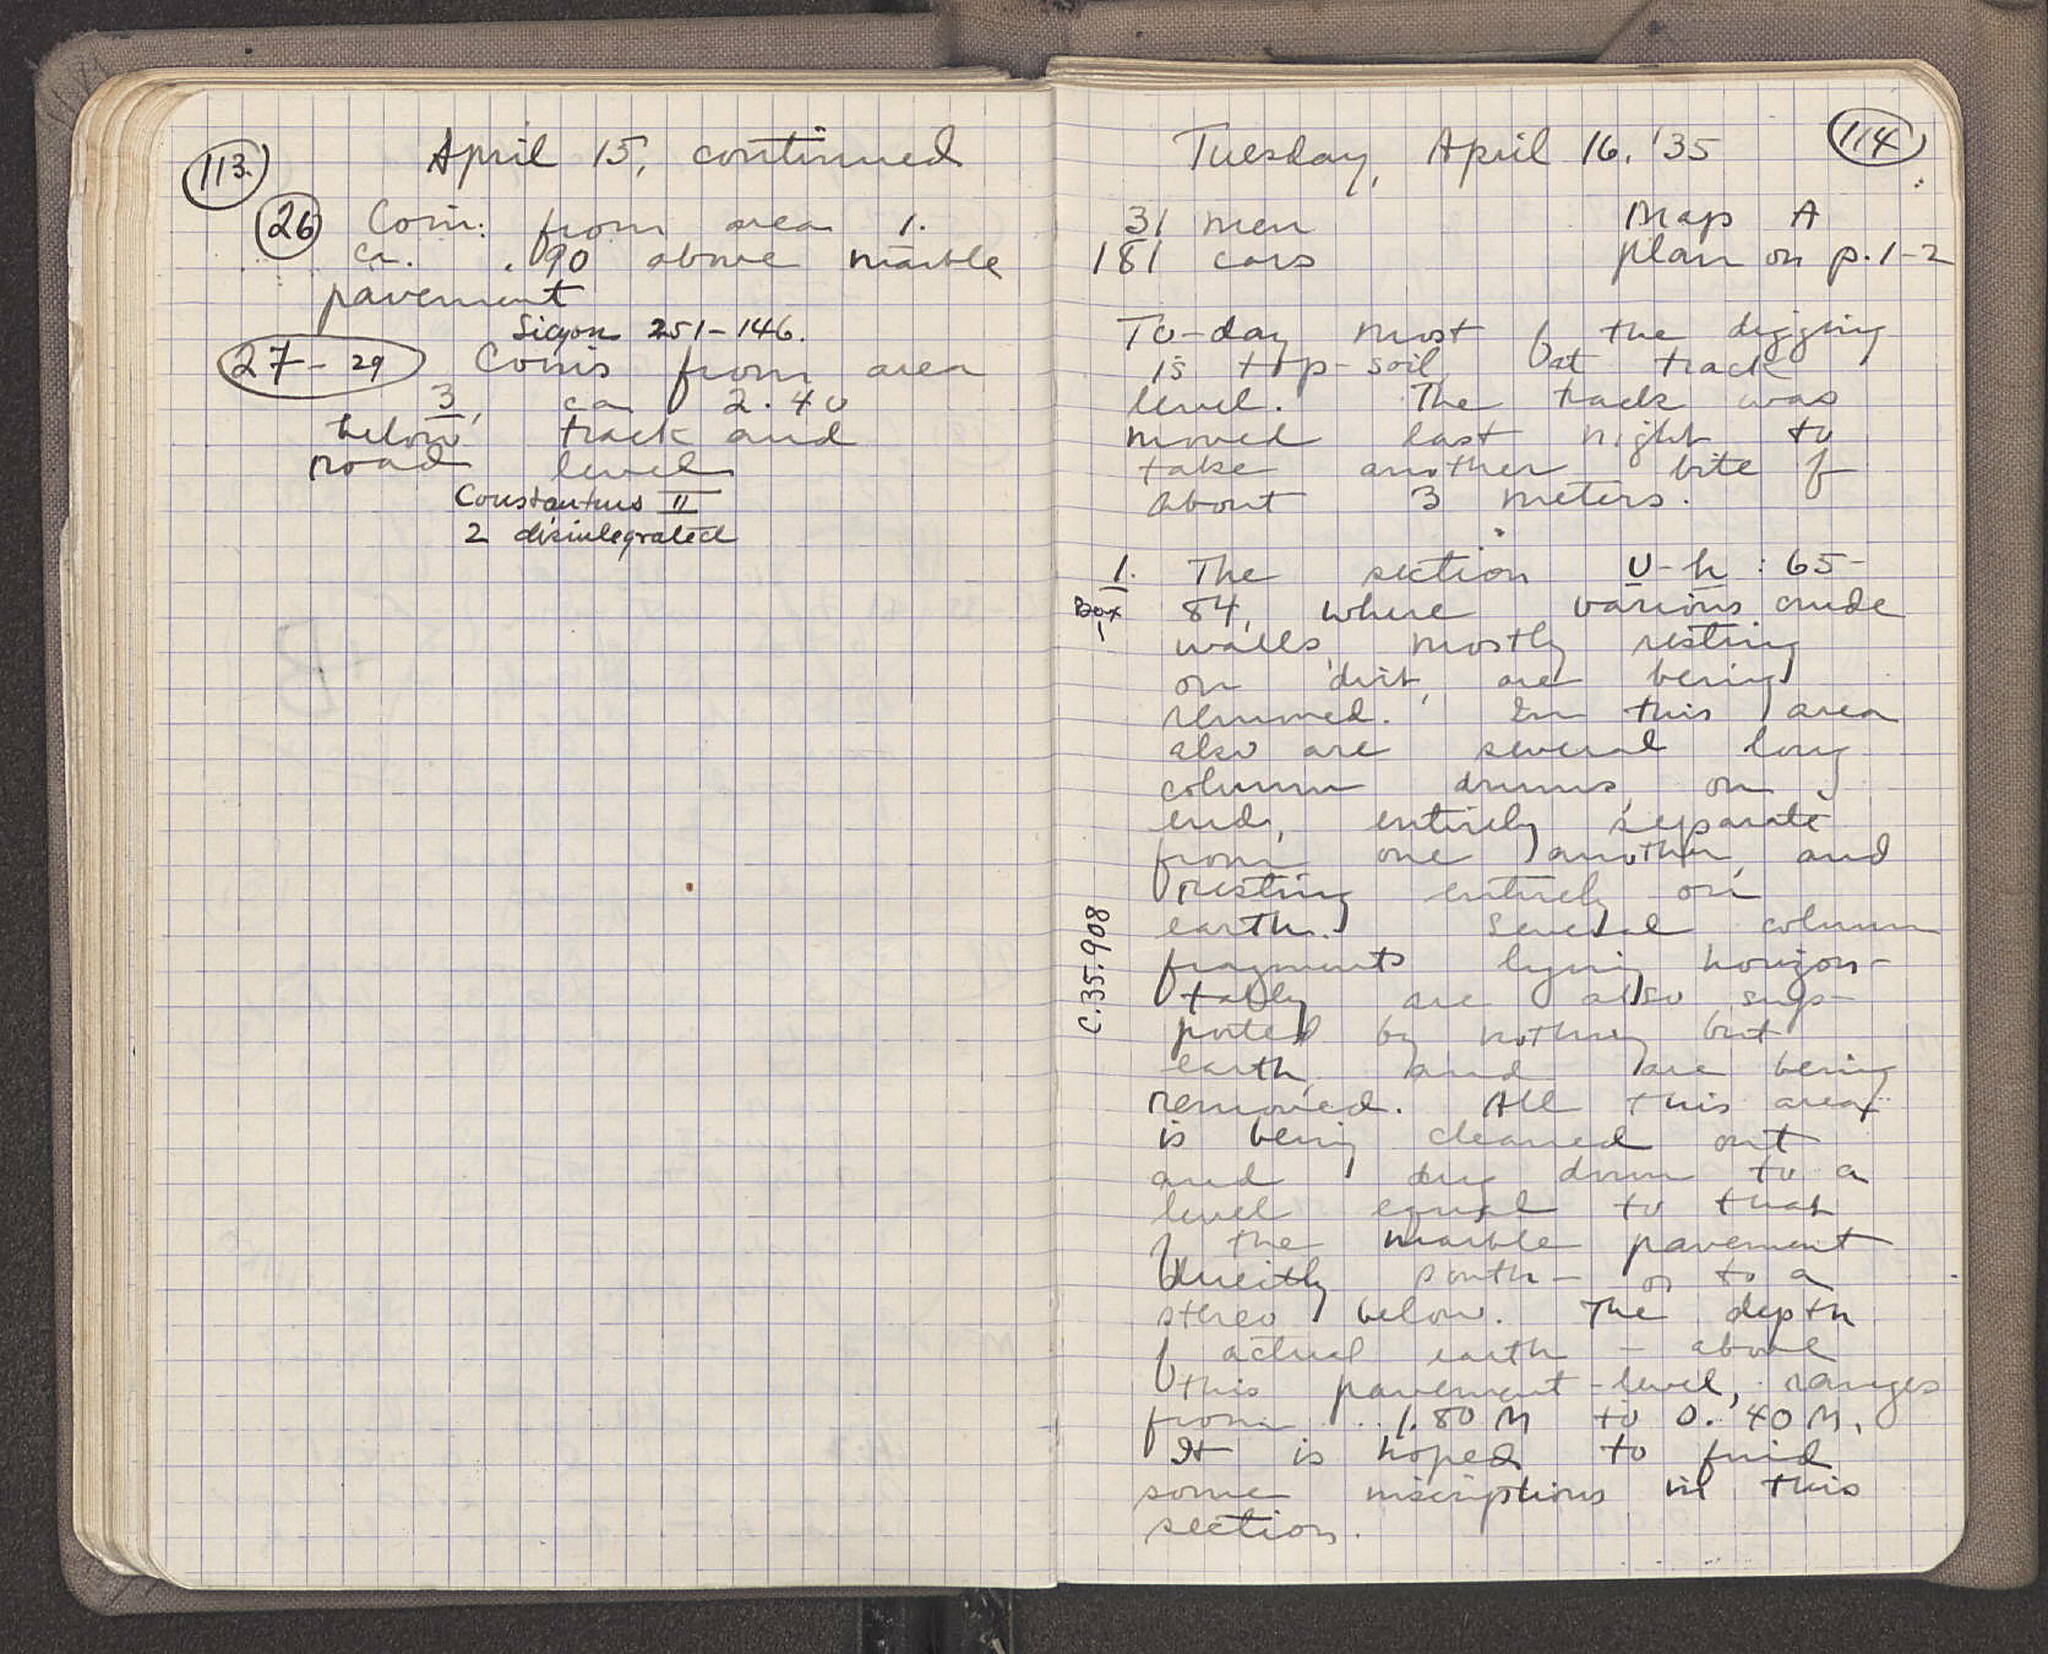 113.
April 15, continued
26 Coin: from area 1.
ca. .90 above marble
pavement
Sicyon 251-146.
27-29 Coins from area
3, ca 2.40
below track and
road level
Constantius II
2 disintegrated
114
Tuesday, April 16, '35
31 men Map A
181 cars plan on p. 1-2
To-day most of the digging
is top-soil, at track
level. The track was
moved last night to
take another bite of
about 3 meters.
1. The section U-h : 65-
Box 84, where various crude
1
walls, mostly resting
on dirt, are being
removed. In this area
also are several long
column drums, on
end, entirely separate
from one another, and
resting entirely on
earth. Several column
fragments lying horizon-
tally are also sup-
ported by nothing but
earth, and are being
removed. All this area
is being cleaned out
and dug down to a
level equal to that
of the marble pavement
directly south- or to a
stereo below. The depth
of actual earth - above
this pavement-level, ranges
from 1.80 M to 0.40 M.
It is hoped to find
some inscriptions in this
section.
C.35.908